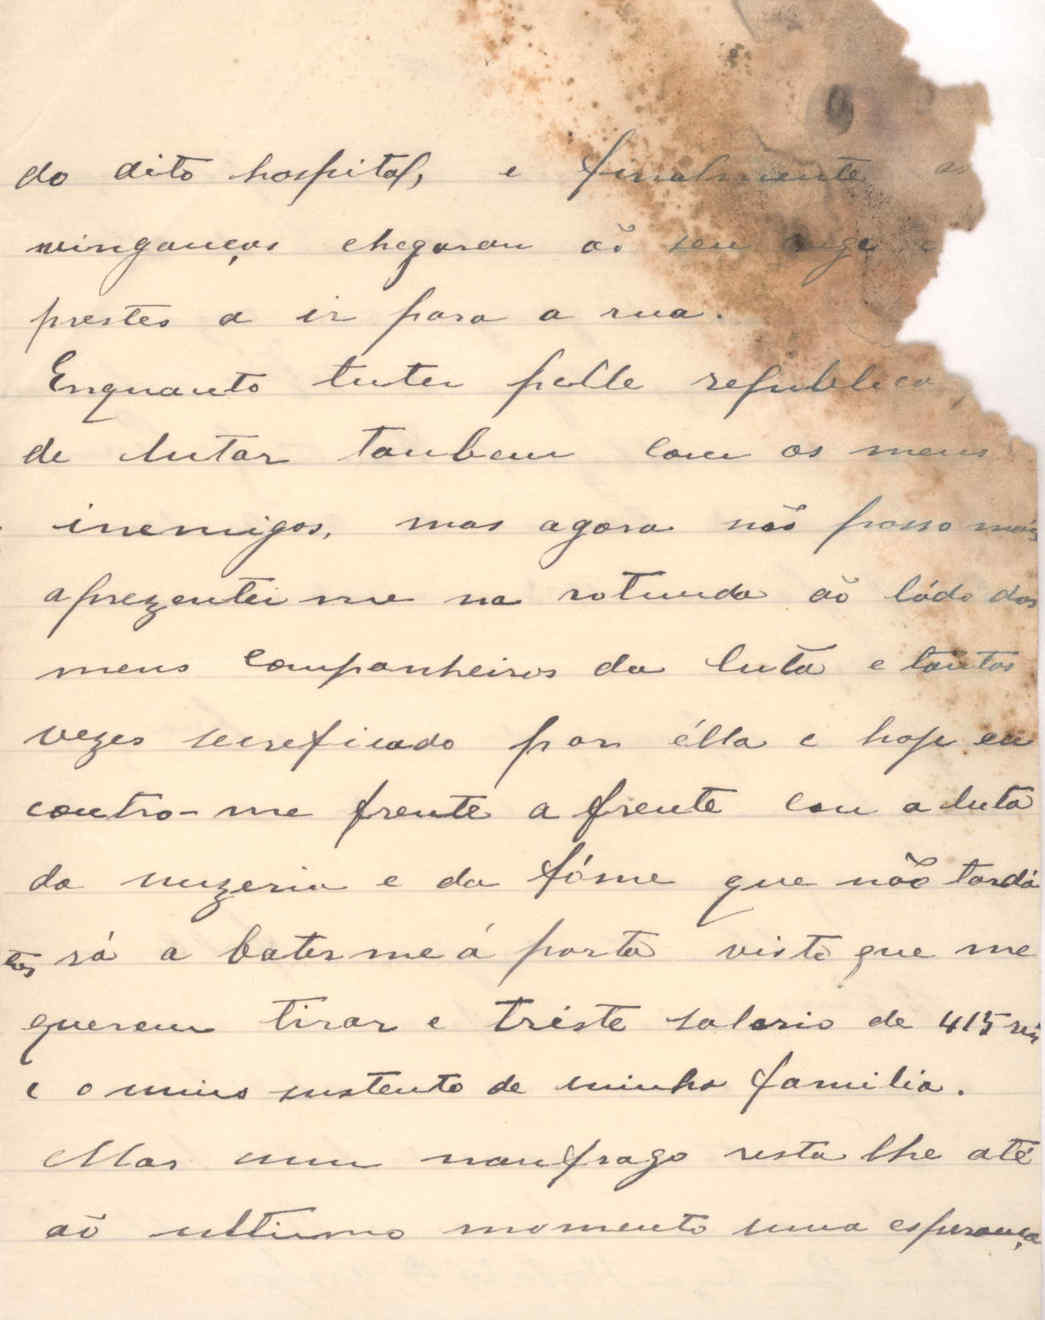 do dito hospital, e finalmente as
vinganças chegaram aõ seu auge e
prestes a ir para a rua.
Enquanto lutei pella republica,
de lutar tambem com os meus
inemigos, mas agora não posso mais
aprezentei me na rotunda aõ ládo dos
meus companheiros da luta e tantas
vezes secreficado por élla e hoje en
contro-me frente a frente com a luta
da mizeria e da fóme que não tarda
rá a baterme á porta visto que me
querem tirar e triste salario de 415 reis
e o unico sustento de minha familia.
Mas um naufrago resta lhe até
aõ ultimo momento uma esperança